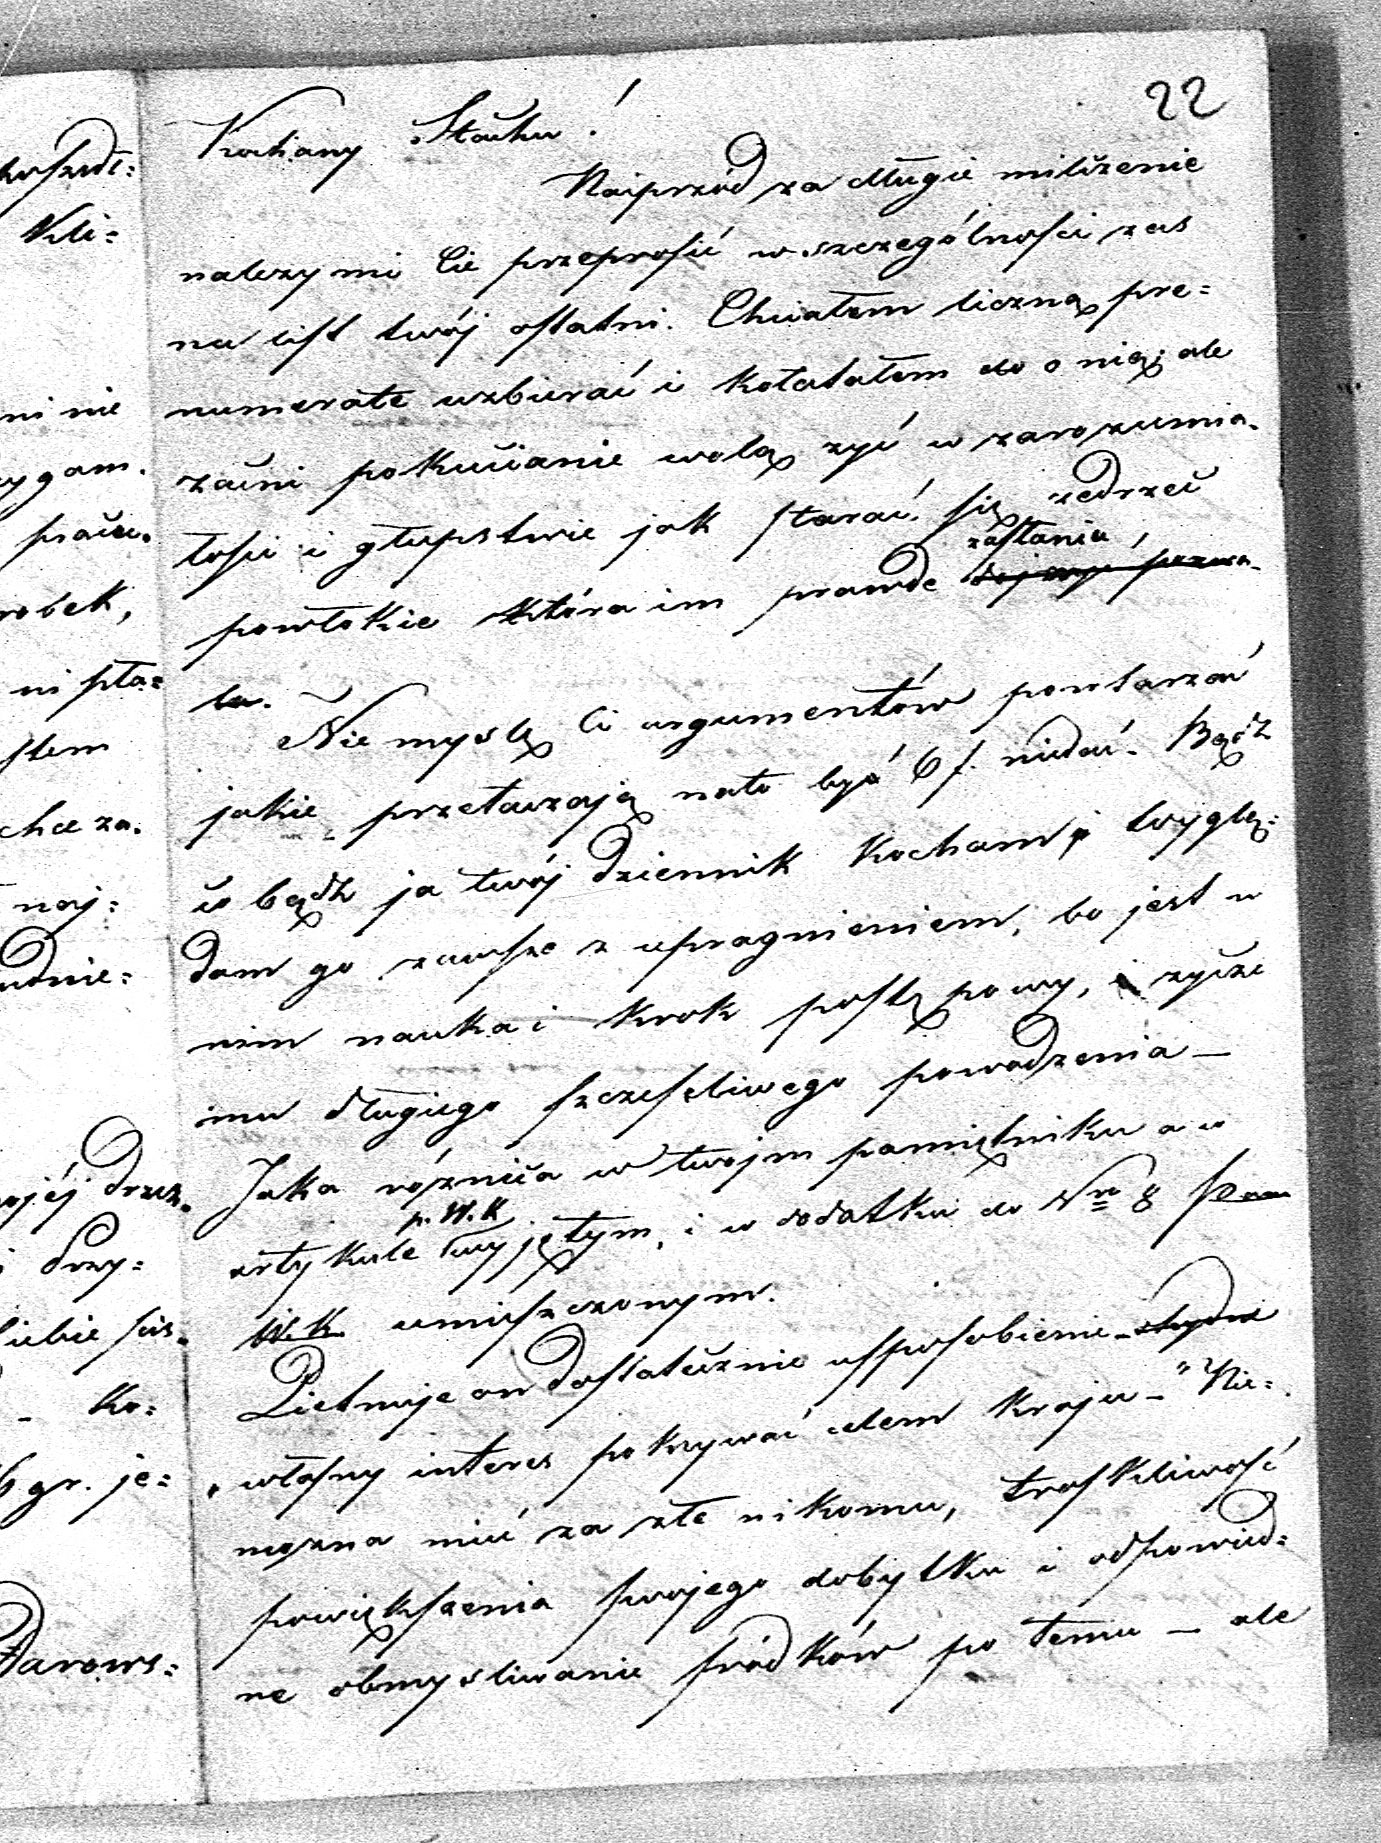 22
Kochany Stachu!
Najprzód za długie milczenie
należy mi Cie przeprosić w szczególności zas
na list twój ostatni. Chciałem liczną pre=
numerate uzbierać i kołatałem do o nią; ale
zacni pokucianie wolą zyć w zarozumia-
łości i głupstwie jak starać się zedrzeć
powłokie która im prawde zasłania,
la.
Nie myslę Ci argumentów powtarzać
jakie przetaczają nato być 6 f. niedać. Bądź
co bądź ja twój dziennik kocham i wyglą=
dam go zawsze z upragnieniem, bo jest w
nim nauka i krok postępowy, i zycze
mu długiego szczesliwego powodzenia —
Jaka róznica w twojm pamiętniku a w
artykule p. W. K wyjętym, i w dodatku do Nro 8 Pana
W. K. umieszczonym.
Pietnuje on dostatecznie usposobienie —
własny interes pokrywać celem kraju — "Nie=
mozna mieć za złe nikomu, troskliwość
powiększenia swojego dobytku i odpowied=
ne obmysliwanie sródków po temu — ale
Kli=
ni nie
ygam.
robek,
ni pła=
stem
chce za.
naj=
udnie=
ojéj
Przy=
iebie
Ko=
gr. je=
Darows=